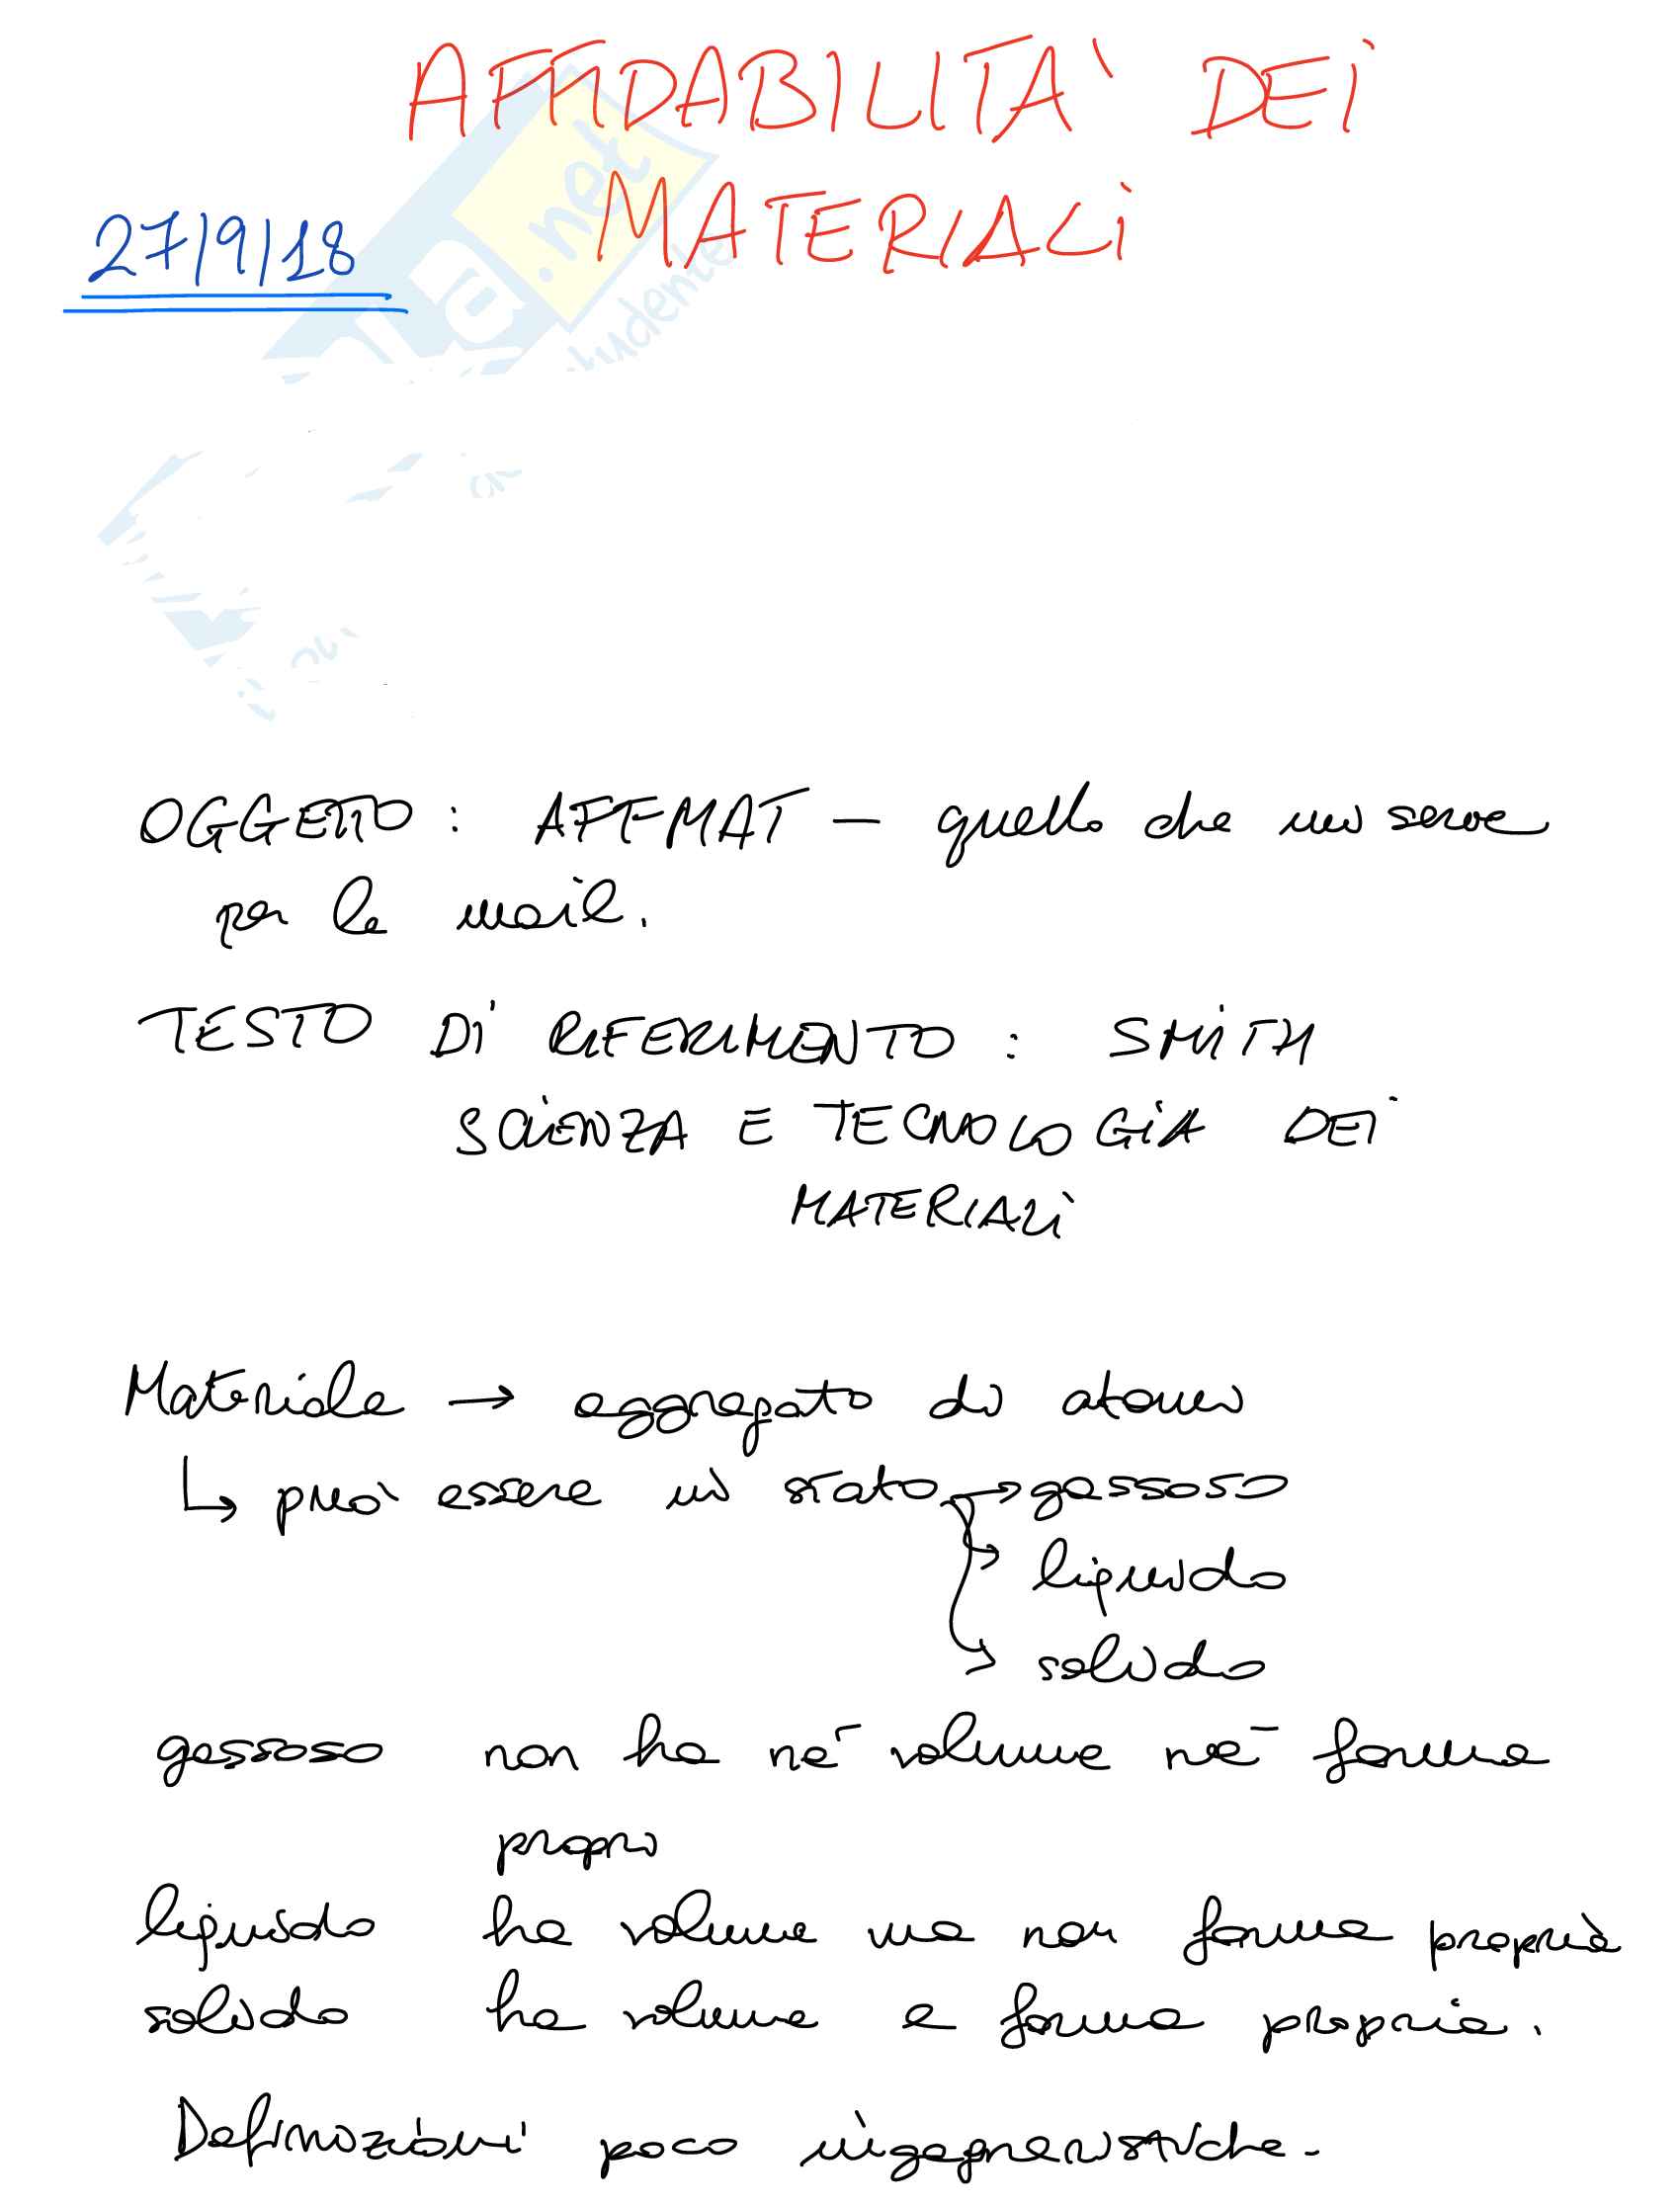 AFFIDABILITA' DEI
MATERIALI
27/9/18
.net
OGGETTO : AFFMAT – quello che mi serve
per la mail.
TESTO DI RIFERIMENTO : SMITH
SCIENZA E TECNOLOGIA DEI
MATERIALI
Materiale → aggregato di atomi
↳ può essere in stato → gassoso
→ liquido
→ solido
gassoso non ha né volume né forma
propri
liquido ha volume ma non forma propria
solido ha volume e forma propria.
Definizioni poco ingegneristiche.